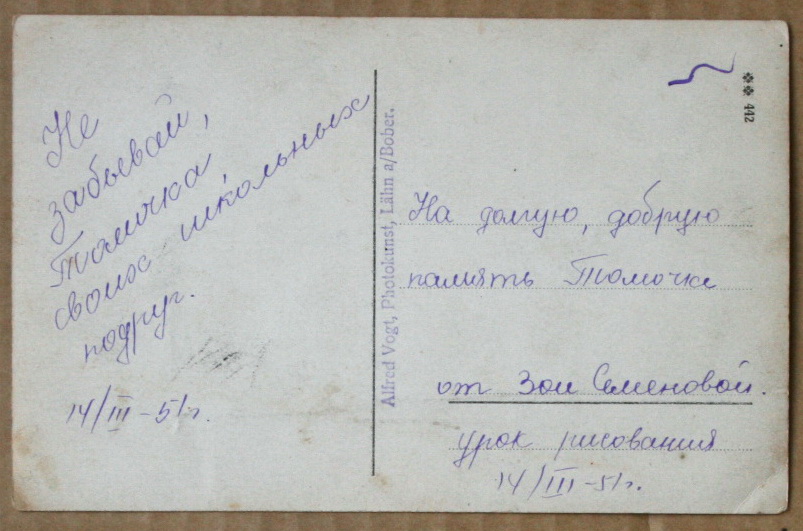 Не
забывай,
Томочка
своих школьных
подруг.
14/III-51г.
Alfred Vogt, Photokunst, Lähn a/Bober.
442
На долгую, добрую
память Томочке
от Зои Семеновой.
урок рисования
14/III-51г.